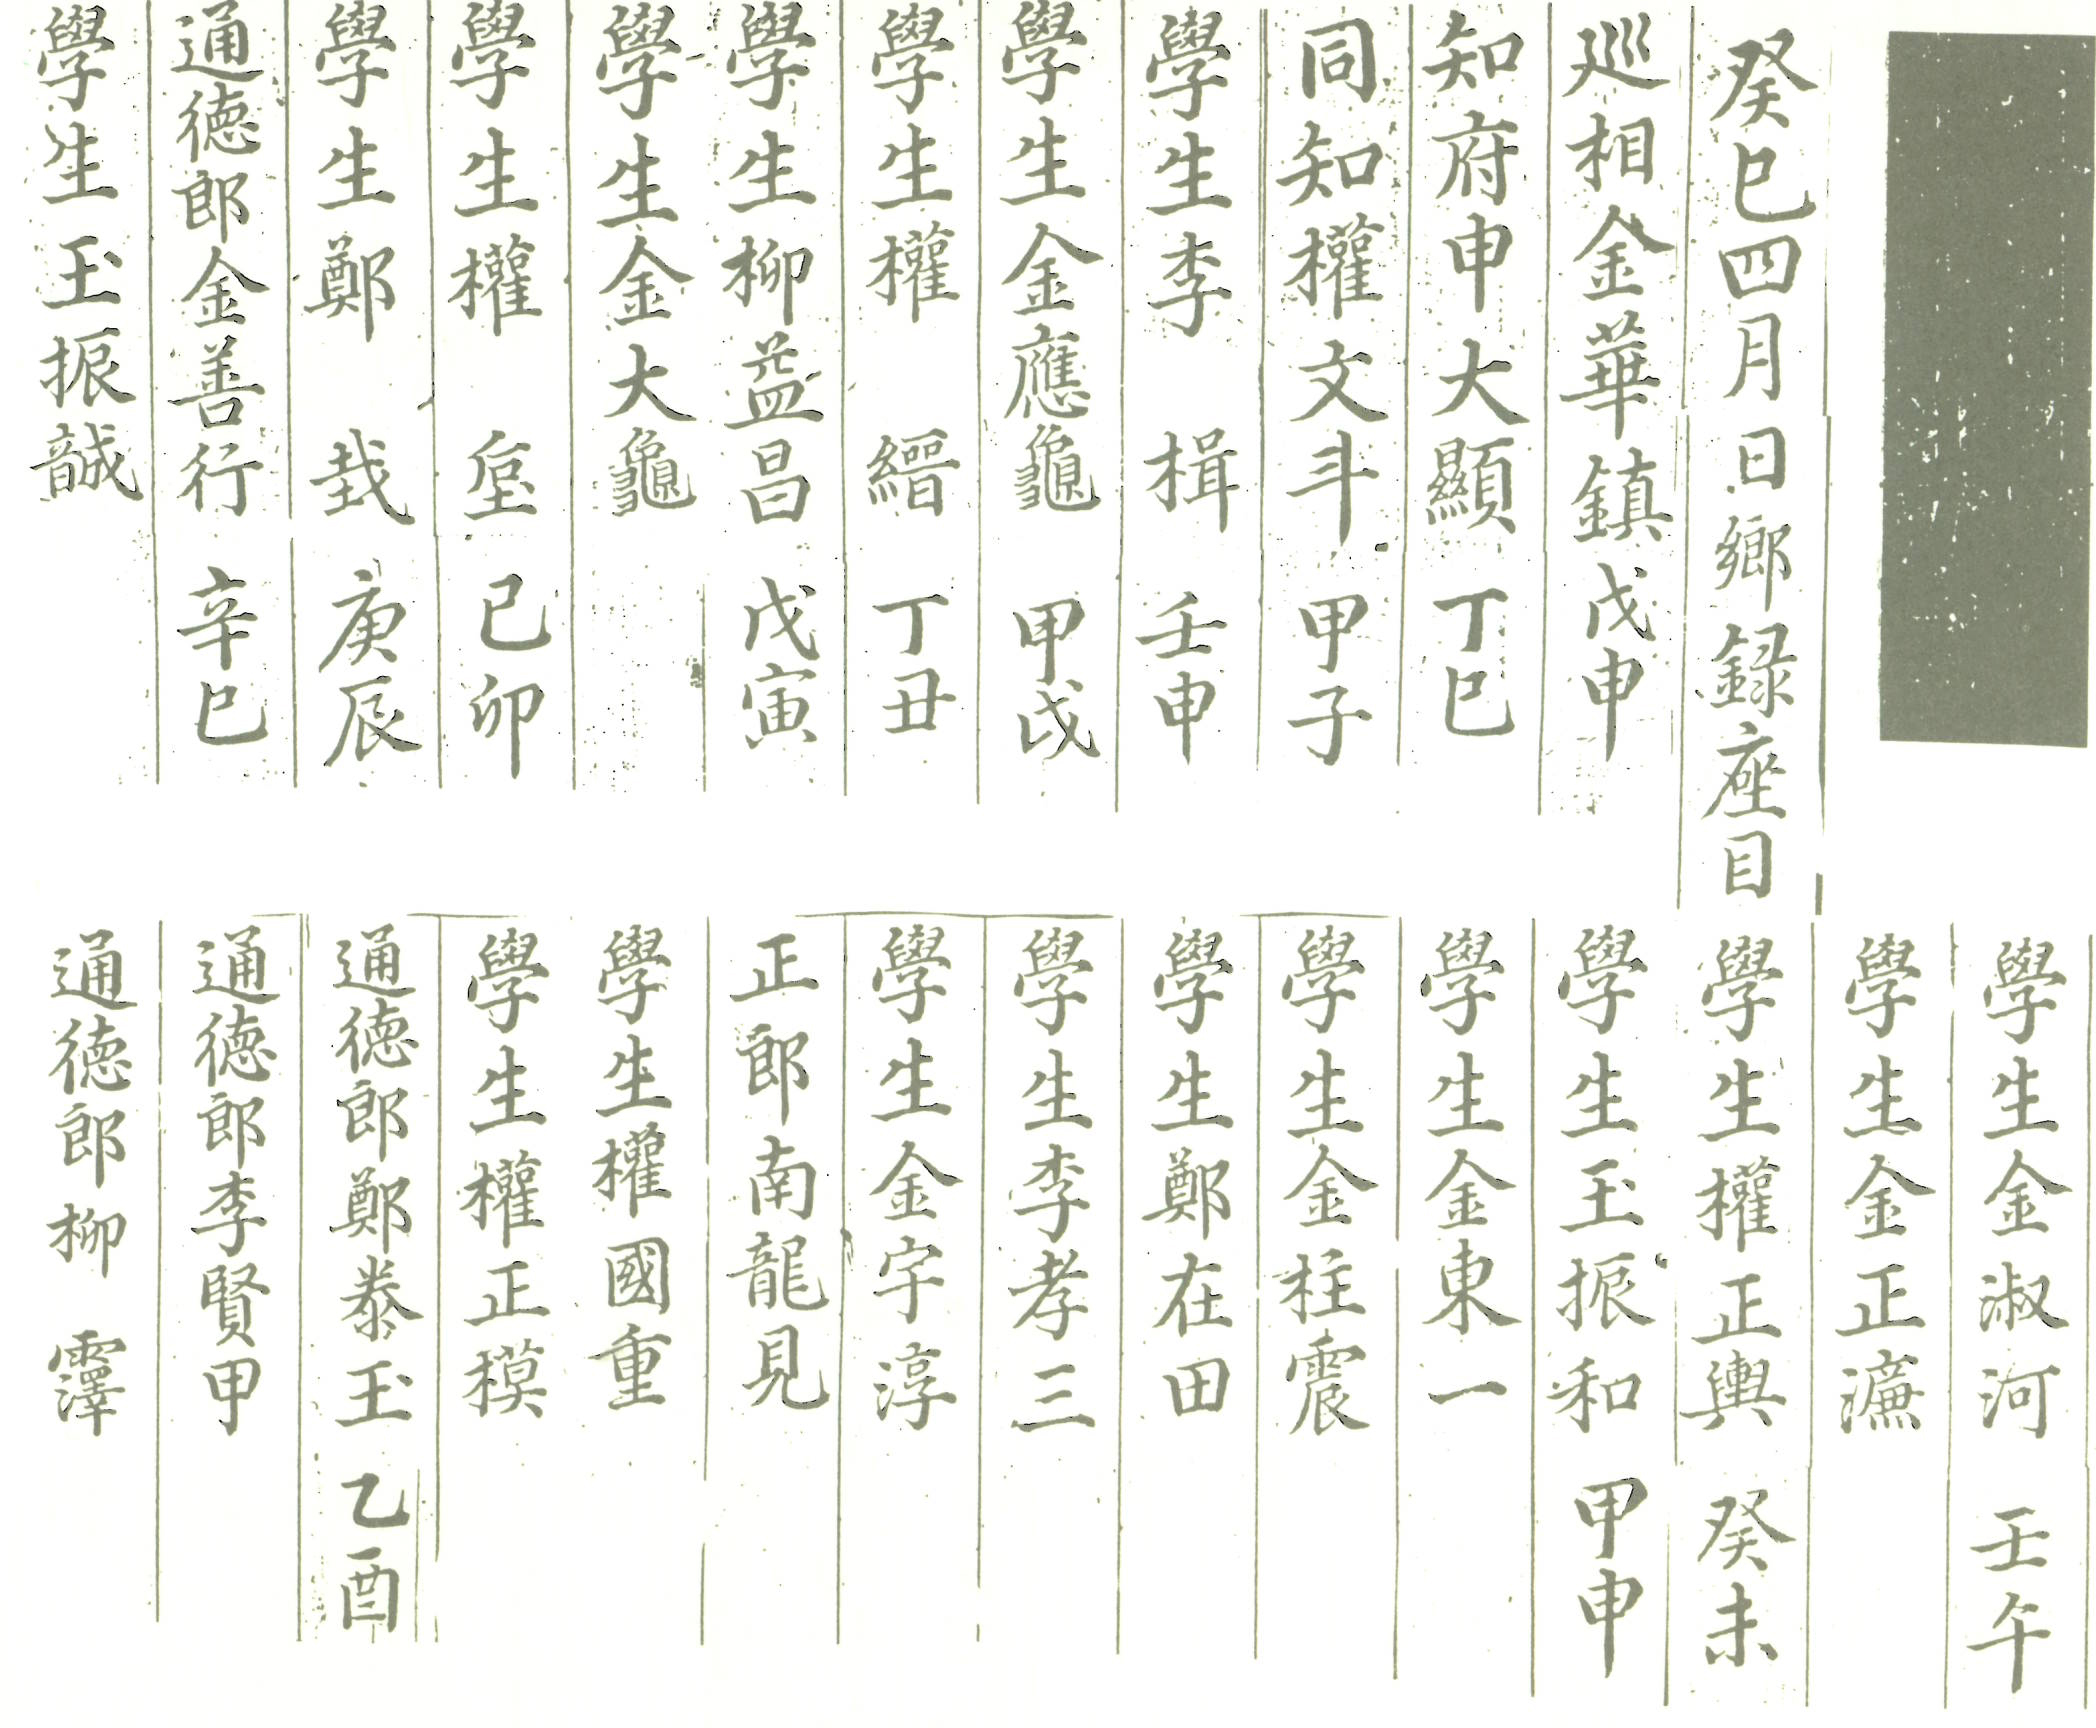 癸巳四月日鄉録座目
巡相金華鎮戊申
知府申大顯丁巳
同知權文斗甲子
學生李楫壬申
學生金應龜甲戌
學生權縉丁丑
學生柳益昌戊寅
學生金大龜
學生權垕己卯
學生鄭 庚辰
通德郎金善行辛巳
學生玉振諴
學生金淑河壬午
學生金正濂
學生權正輿癸未
學生玉振和甲申
學生金東一
學生金柱震
學生鄭在田
學生李孝三
學生金宇淳
正郎南龍見
學生權國重
學生權正模
通德郎鄭泰玉乙酉
通德郎李賢甲
通德郎柳霔